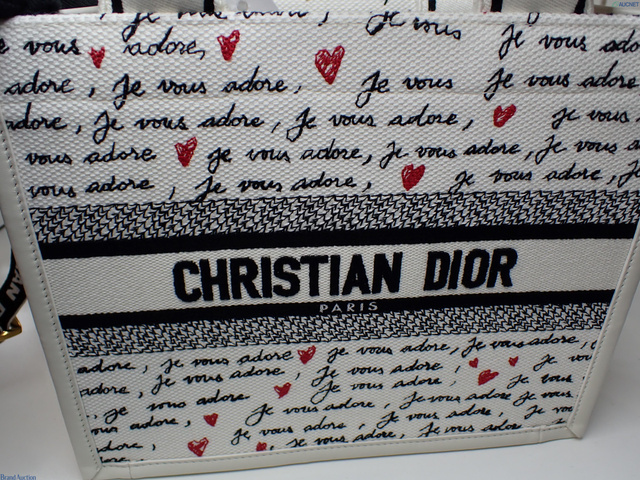 AUCNET
je vous adore, je vous
vous adore, je vous ado
adore, je vous adore, je vous adore
adore, je vous adore, je vous adore, je vous
vous adore je vous adore, je vous adore, je vous
vous adore, je vous adore, je vous adore
CHRISTIAN DIOR
PARIS
adore, je vous adore je vous adore, je vous adore
adore, je vous adore, je vous adore, je vous
je vous adore je vous adore, je vous adore
adore, je vous adore, je vous adore
adore, je vous adore, je vous adore
Brand Auction